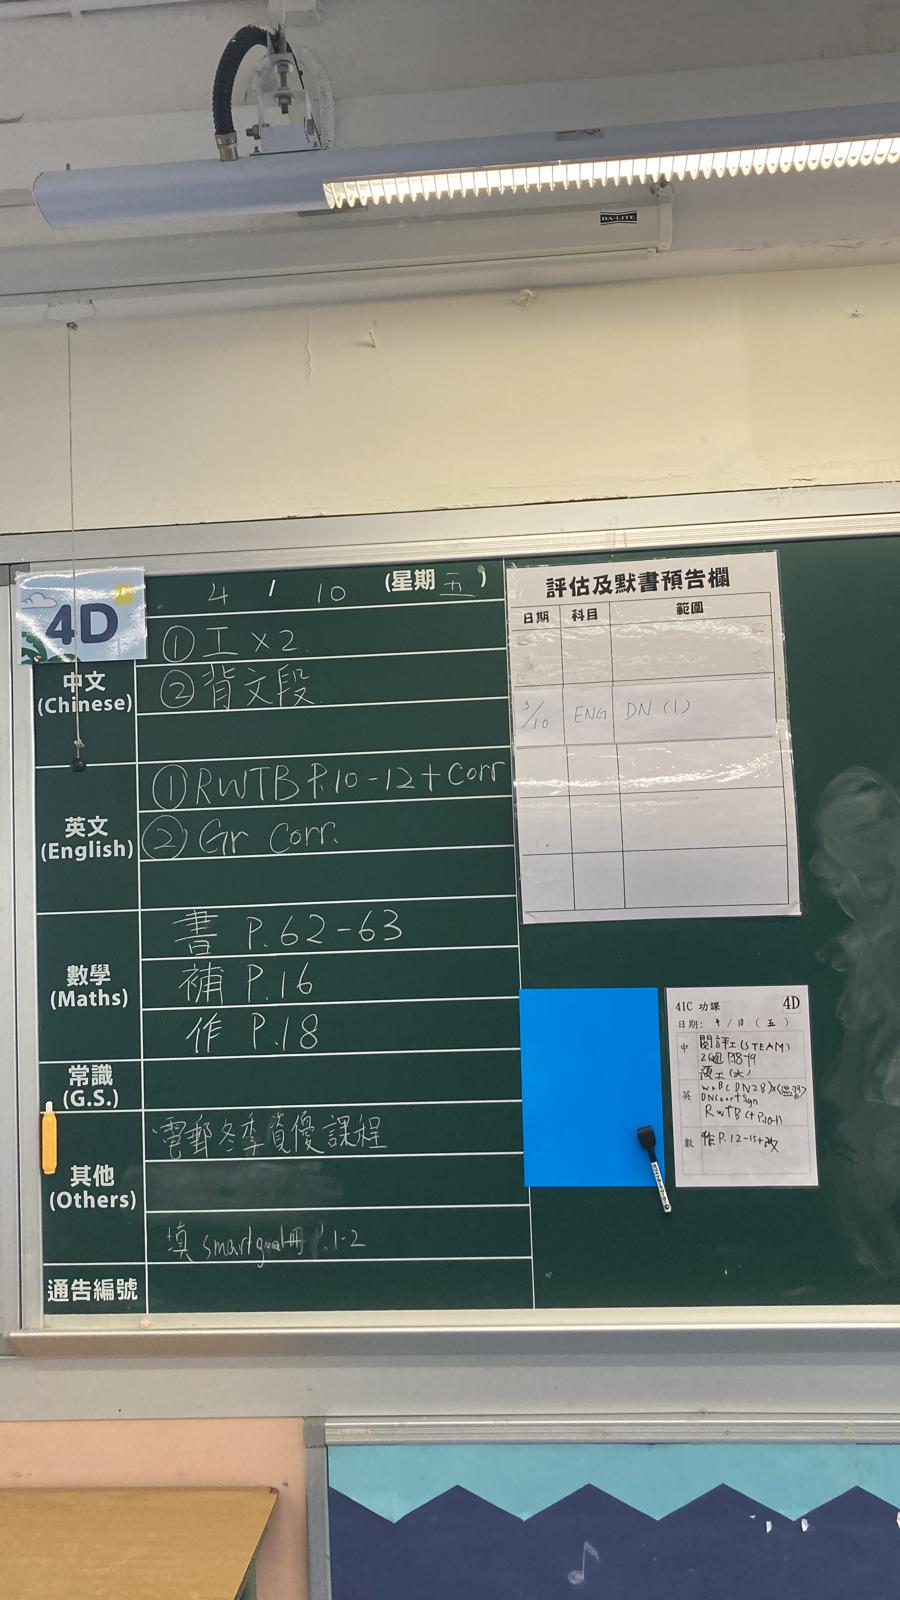 DA-LITE
4D
4 / 10 (星期五)
中文
(Chinese)
①工 x2
②背文段
英文
(English)
①RWTB P.10-12+Corr
②Gr Corr.
數學
(Maths)
書 P.62-63
補 P.16
作 P.18
常識
(G.S.)
其他
(Others)
電郵冬季資優課程
填 smart goal冊 P.1-2
通告編號
評估及默書預告欄
日期 科目 範圍
3/10 ENG DN (1)
4IC 功課 4D
日期: 4 / 10 ( 五 )
中 閱評工(STEAM)
P.18-19
預工(六)
英 WBC DN28)
DN Corr+Sign
RWTB
數 作 P.12-15+改